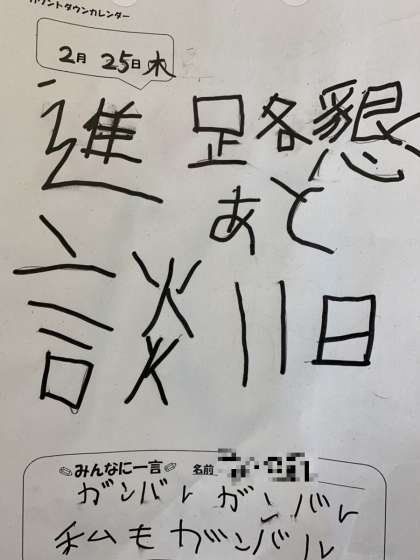 カウントダウンカレンダー
2月 25日 木
進路懇
あと
談 11日
みんなに一言 名前
ガンバレ ガンバレ
私もガンバル